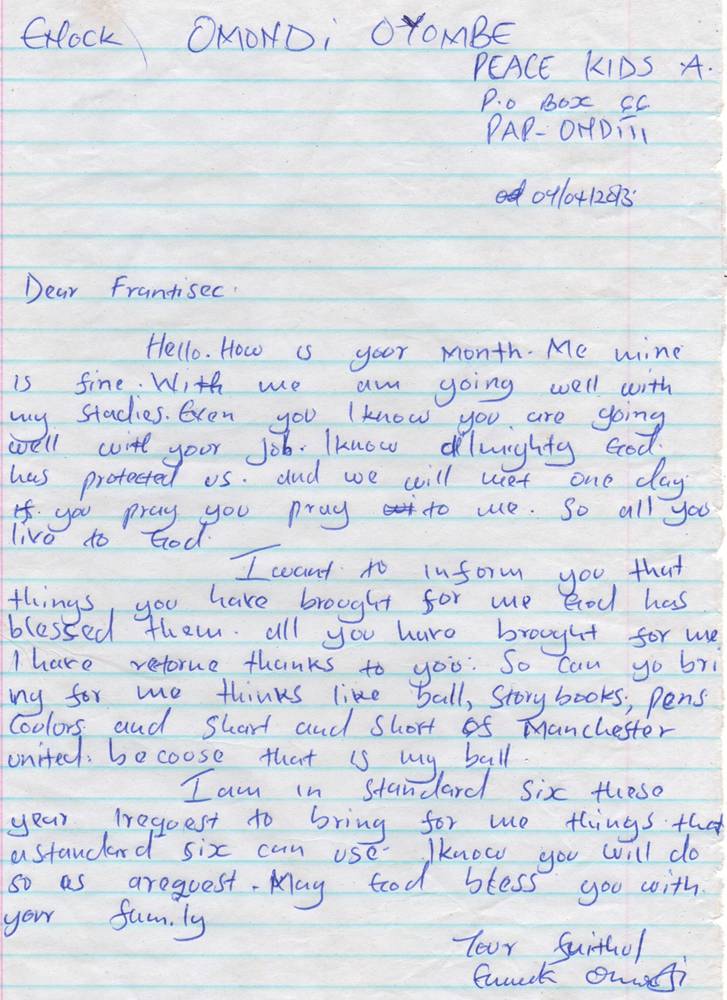 Enock OMONDi OYOMBE
PEACE KIDS A.
P.o BOX
PAP-ONDiii
04/04/2013
Dear Frantisec.
Hello. How is your month. Me mine
is fine. With me am going well with
my studies. Even you I know you are going
well with your job. I know almighty God.
has protected us. and we will met one day
if you pray you pray to me. So all you
live to God.
I want to inform you that
things you have brought for me God has
blessed them. all you have brought for me
I have retorne thanks to you. So can yo bri
ng for me thinks like ball, story books, pens
Coolors and shart and short of Manchester
united. be coose that is my ball.
I am in standard six these
year I request to bring for me things that
a standard six can use. I know you will do
so as a request. May God bless you with.
your family
Your faithul
Enock Omondi